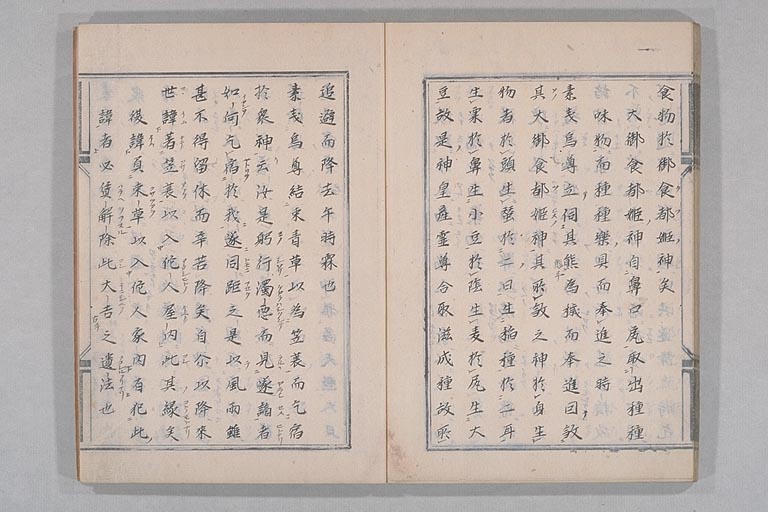 食物於御食都姬神矣
大御食都姬神自鼻口尻取出種種
味物而種種樂具而奉進之時
素戔烏尊立伺其態為穢而奉進曰敘
其大御食都姬神其所敘之神於身生
物者於頭生蠶於二目生稻種於二耳
生粟於鼻生小豆於陰生麦於尻生大
豆故是神皇產靈尊令取滋成種故所
追避而降去午時霖也
素戔烏尊結束青草以為笠蓑而乞宿
於衆神云汝是躬行濁惡而見逐謫者
如何乞宿於我遂同距之是以風雨雖
甚不得留休而辛苦降矣自尒以降來
世諱著笠蓑以入佗人屋内此其緣矣
後諱負束草以入佗人家内有犯此
諱者必債解除此大古之遺法也